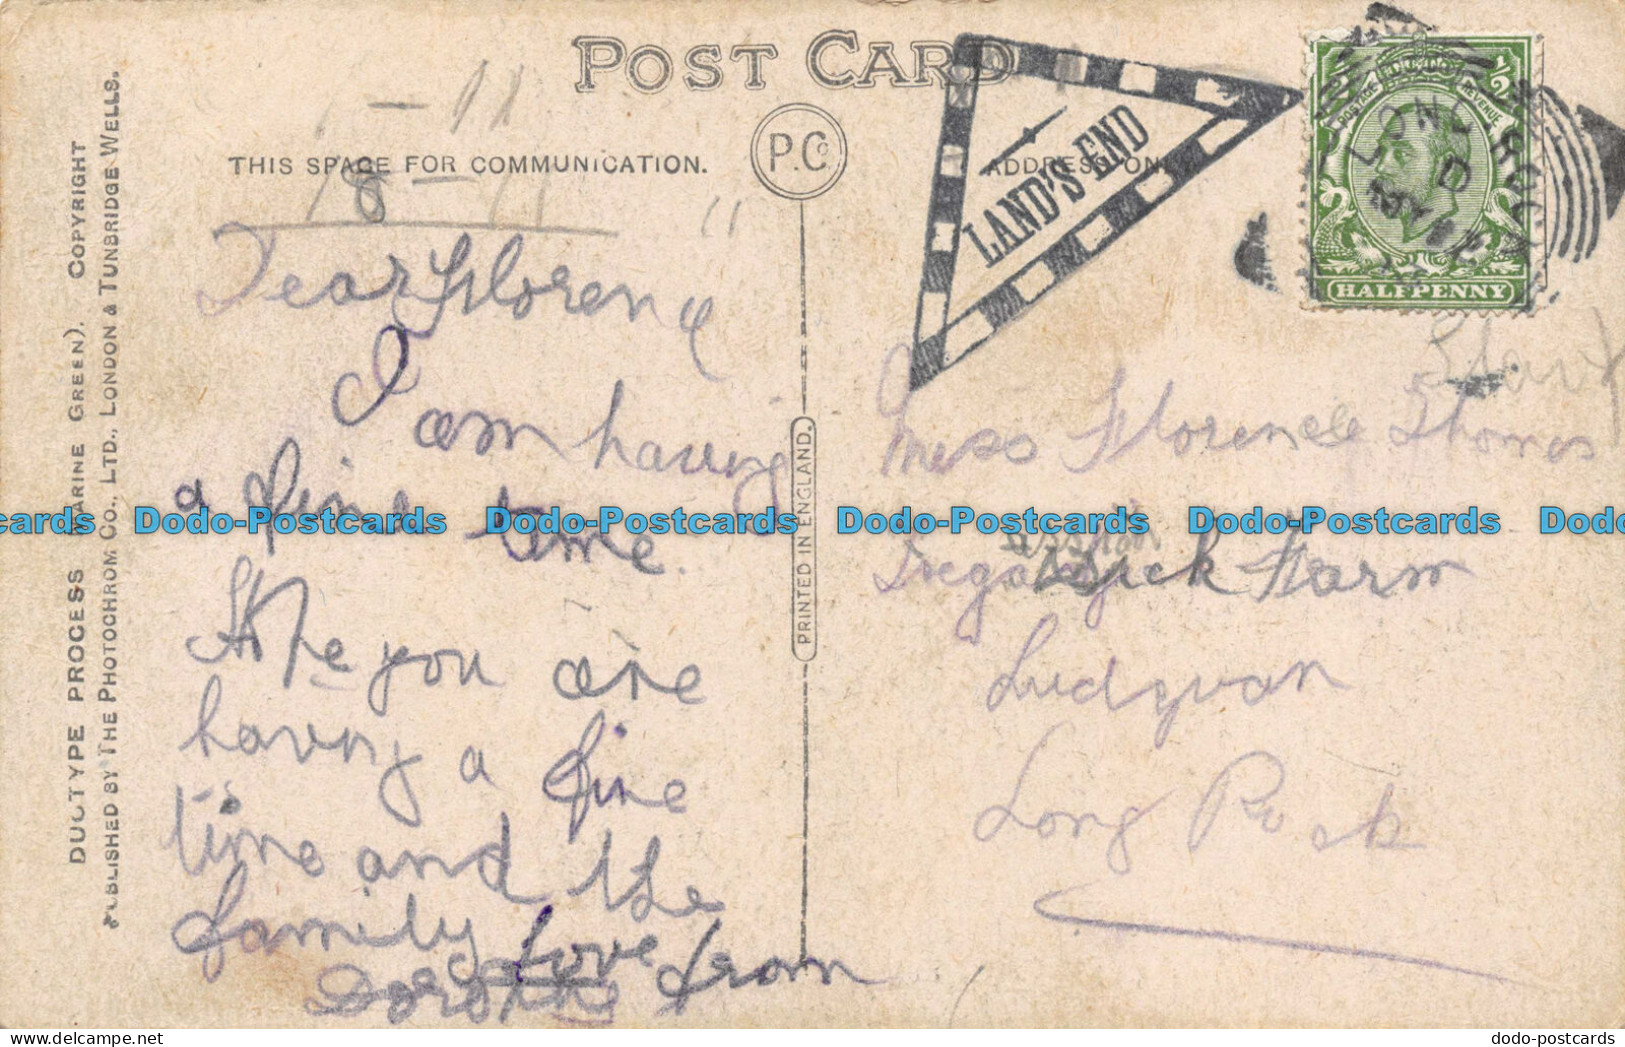 POST CARD
THIS SPACE FOR COMMUNICATION.
P.C.
ADDRESS ON
LAND'S END
POSTAGE
REVENUE
1/2
HALFPENNY
DUOTYPE PROCESS (MARINE GREEN). COPYRIGHT
PUBLISHED BY THE PHOTOCHROM CO., LTD., LONDON & TUNBRIDGE WELLS.
PRINTED IN ENGLAND.
- 11
18 - 11
11
Dear Florence
I am having
a fine time.
Hope you are
having a fine
time and the
family love from
Miss Florence Thomas
Farm
Ludgvan
Long Rock
Dodo-Postcards Dodo-Postcards Dodo-Postcards Dodo-Postcards
dodo-postcards